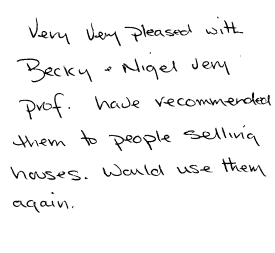 Very Very pleased with
Becky + Nigel very
prof. have recommended
them to people selling
houses. Would use them
again.